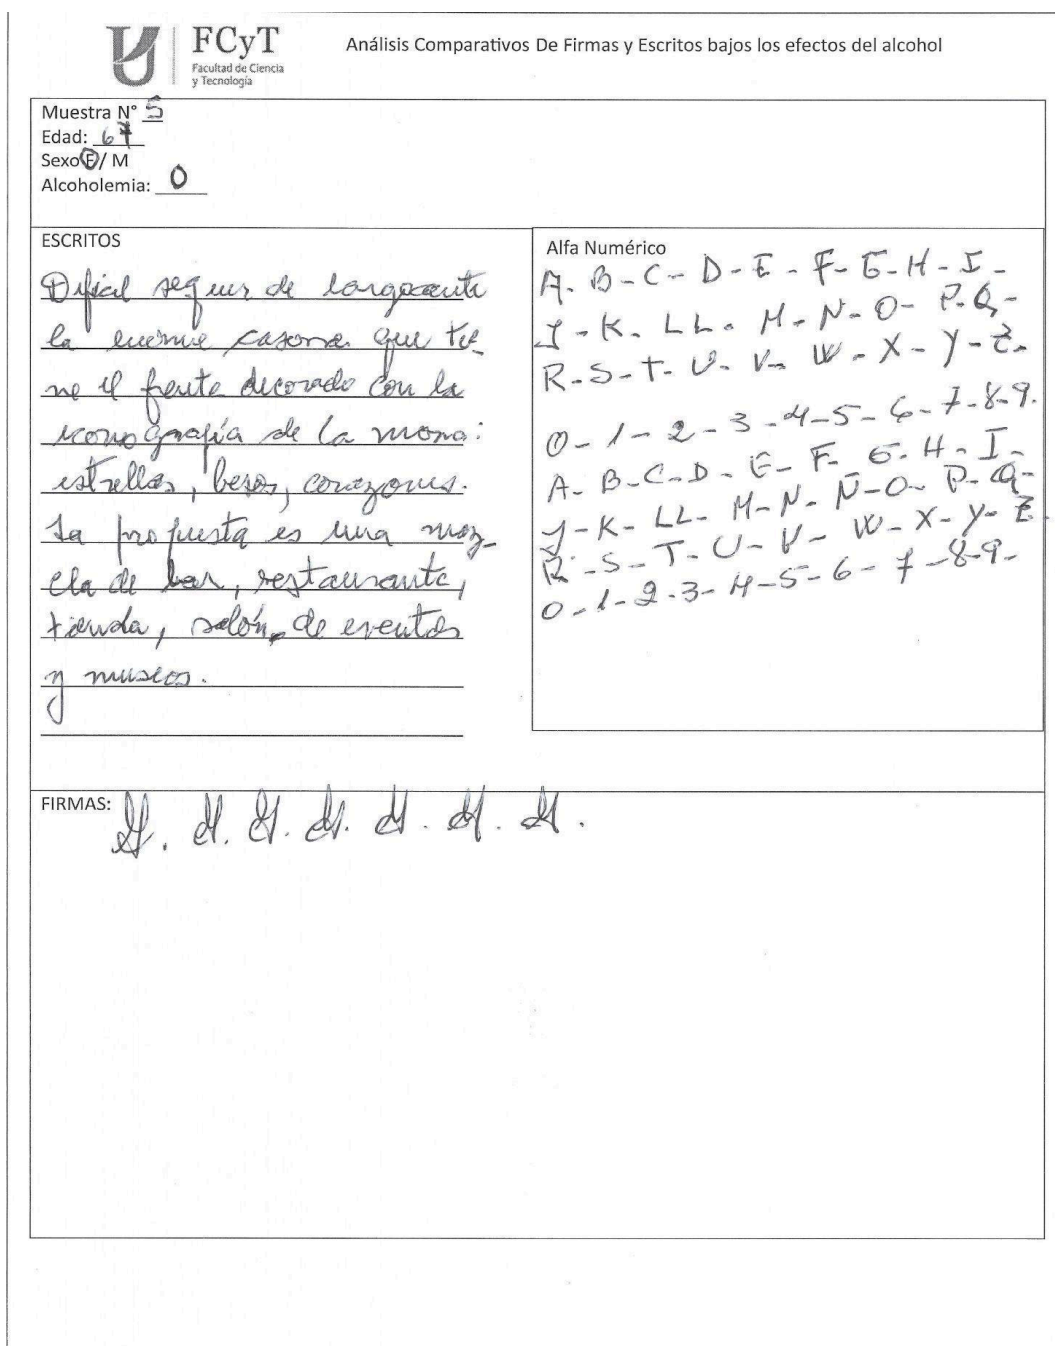 FCyT
Facultad de Ciencia
y Tecnología
Análisis Comparativos De Firmas y Escritos bajos los efectos del alcohol
Muestra N° 5
Edad: 67
Sexo F/ M
Alcoholemia: 0
ESCRITOS
Difícil seguir de largo ante
la enorme casona que tie_
ne el frente decorado con la
iconografía de la mona:
estrellas, besos, corazones.
La propuesta es una mez_
cla de bar, restaurante,
tienda, salón de eventos
y museos.
Alfa Numérico
A- B - C - D - E - F - G - H - I -
J - K - LL - M - N - O - P - Q -
R - S - T - U - V - W - X - Y - Z -
0 - 1 - 2 - 3 - 4 - 5 - 6 - 7 - 8 - 9.
A - B - C - D - E - F - G - H - I -
J - K - LL - M - N - Ñ - O - P - Q -
R - S - T - U - V - W - X - Y - Z
0 - 1 - 2 - 3 - 4 - 5 - 6 - 7 - 8 - 9 -
FIRMAS: